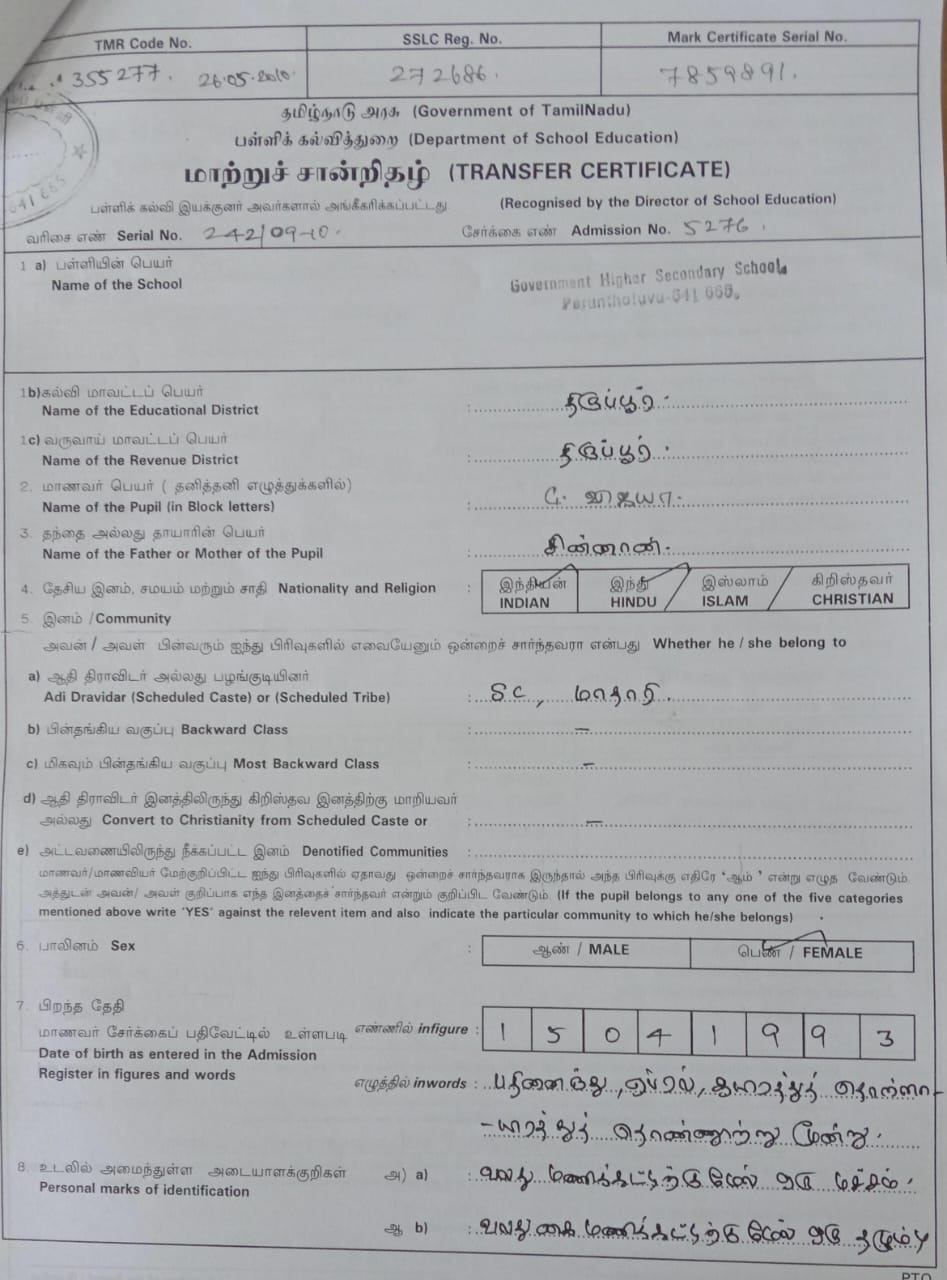 TMR Code No. SSLC Reg. No. Mark Certificate Serial No.
355277. 26.05.2010. 272686. 7859891.
641 665
தமிழ்நாடு அரசு (Government of TamilNadu)
பள்ளிக் கல்வித்துறை (Department of School Education)
மாற்றுச் சான்றிதழ் (TRANSFER CERTIFICATE)
பள்ளிக் கல்வி இயக்குனர் அவர்களால் அங்கீகரிக்கப்பட்டது. (Recognised by the Director of School Education)
வரிசை எண் Serial No. 242/09-10. சேர்க்கை எண் Admission No. 5276.
1 a) பள்ளியின் பெயர்
Name of the School Government Higher Secondary School,
Peruntholuvu-641 665.
1b)கல்வி மாவட்டப் பெயர்
Name of the Educational District : திருப்பூர்.
1c) வருவாய் மாவட்டப் பெயர்
Name of the Revenue District : திருப்பூர்.
2. மாணவர் பெயர் ( தனித்தனி எழுத்துக்களில்)
Name of the Pupil (in Block letters) : ஜயா.
3. தந்தை அல்லது தாயாரின் பெயர்
Name of the Father or Mother of the Pupil : சின்னான்.
4. தேசிய இனம், சமயம் மற்றும் சாதி Nationality and Religion : இந்தியன் INDIAN இந்து HINDU / இஸ்லாம் ISLAM / கிறிஸ்தவர் CHRISTIAN
5. இனம் /Community
அவன் / அவள் பின்வரும் ஐந்து பிரிவுகளில் எவையேனும் ஒன்றைச் சார்ந்தவரா என்பது Whether he / she belong to
a) ஆதி திராவிடர் அல்லது பழங்குடியினர்
Adi Dravidar (Scheduled Caste) or (Scheduled Tribe) : SC, மாதாரி.
b) பின்தங்கிய வகுப்பு Backward Class : –
c) மிகவும் பின்தங்கிய வகுப்பு Most Backward Class : –
d) ஆதி திராவிடர் இனத்திலிருந்து கிறிஸ்தவ இனத்திற்கு மாறியவர்
அல்லது Convert to Christianity from Scheduled Caste or : –
e) அட்டவணையிலிருந்து நீக்கப்பட்ட இனம் Denotified Communities :
மாணவர்/மாணவியர் மேற்குறிப்பிட்ட ஐந்து பிரிவுகளில் ஏதாவது ஒன்றைச் சார்ந்தவராக இருந்தால் அந்த பிரிவுக்கு எதிரே 'ஆம்' என்று எழுத வேண்டும்.
அத்துடன் அவன்/ அவள் குறிப்பாக எந்த இனத்தைச் சார்ந்தவர் என்றும் குறிப்பிட வேண்டும். (If the pupil belongs to any one of the five categories
mentioned above write 'YES' against the relevent item and also indicate the particular community to which he/she belongs)
6. பாலினம் Sex : ஆண் / MALE பெண் / FEMALE
7. பிறந்த தேதி
மாணவர் சேர்க்கைப் பதிவேட்டில் உள்ளபடி எண்ணில் infigure : 1 5 0 4 1 9 9 3
Date of birth as entered in the Admission
Register in figures and words எழுத்தில் inwords : பதினைந்து, ஏப்ரல், ஆயிரத்துத் தொள்ளா-
-யிரத்துத் தொண்ணூற்று மூன்று.
8. உடலில் அமைந்துள்ள அடையாளக்குறிகள் அ) a) : வலது மணிக்கட்டிற்கு மேல் ஒரு மச்சம்.
Personal marks of identification
ஆ b) : வலது கை மணிக்கட்டிற்கு மேல் ஒரு தழும்பு
PTO